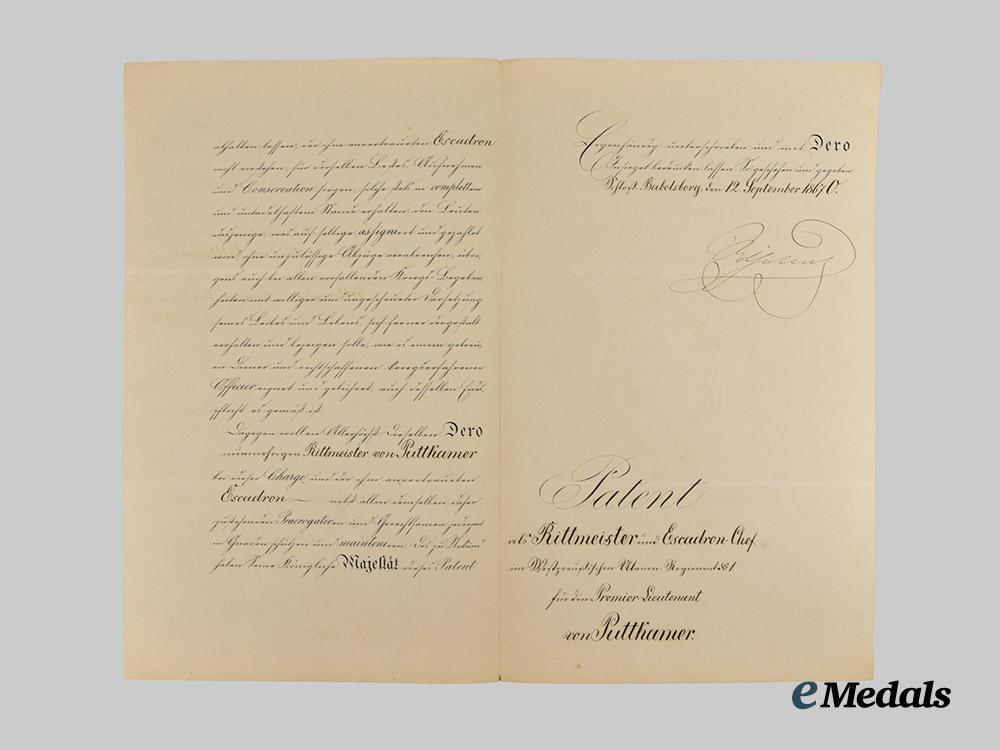 abhalten lassen, der ihm anvertrauten Escadron
recht vorstehen, für derselben Bestes, Aufnehmen
und Conservation sorgen, solche stets in completten
und untadelhaften Stande erhalten, den Leuten
dasjenige, was auf selbige assigniert und gezahlet
wird ohne unzulässige Abzüge verabreichen, übri-
gens auch bei allen vorfallenden Kriegs-Begeben-
heiten mit williger und ungescheueter Daransetzung
seines Leibes und Lebens, sich ferner dergestalt
verhalten und bezeigen solle, wie es einem getreu-
en Diener und rechtschaffenen kriegserfahrenen
Officier eignet und gebühret, auch desselben Eides-
pflicht es gemäß ist.
Dagegen wollen Allerhöchst-Dieselben Dero
nunmehrigen Rittmeister von Puttkamer
bei dieser Charge und der ihm anvertrauten
Escadron — nebst allen demselben daher
zustehenden Praerogativen und Gerechtsamen jederzeit
in Gnaden schützen und mainteniren. Des zu Urkund
haben Seine Königliche Majestät dieses Patent
Eigenhändig unterschrieben und mit Dero
Insiegel bedrucken lassen. So geschehen und gegeben
Schloß Babelsberg, den 12. September 1867.
Wilhelm
Patent
als Rittmeister und Escadron-Chef
im Westpreußischen Ulanen-Regiment No 1
für den Premier-Lieutenant
von Puttkamer.
eMedals